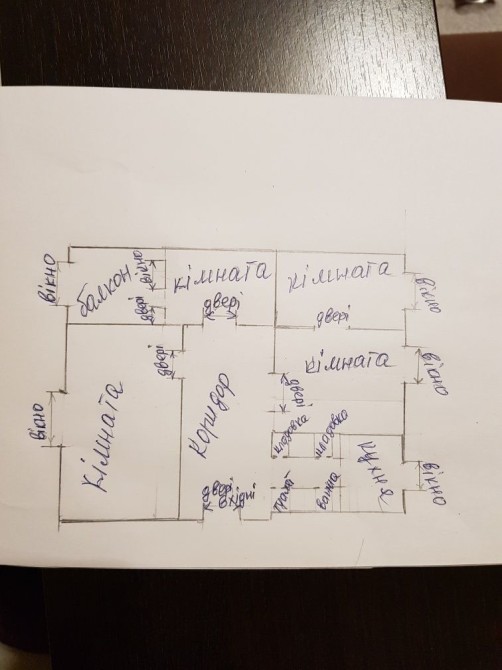 вікно
балкон
вікно
двері
кімната
двері
кімната
двері
вікно
вікно
кімната
двері
коридор
кімната
двері
вікно
кладовка
кладовка
кухня
вікно
двері
вхідні
туалет
ванна